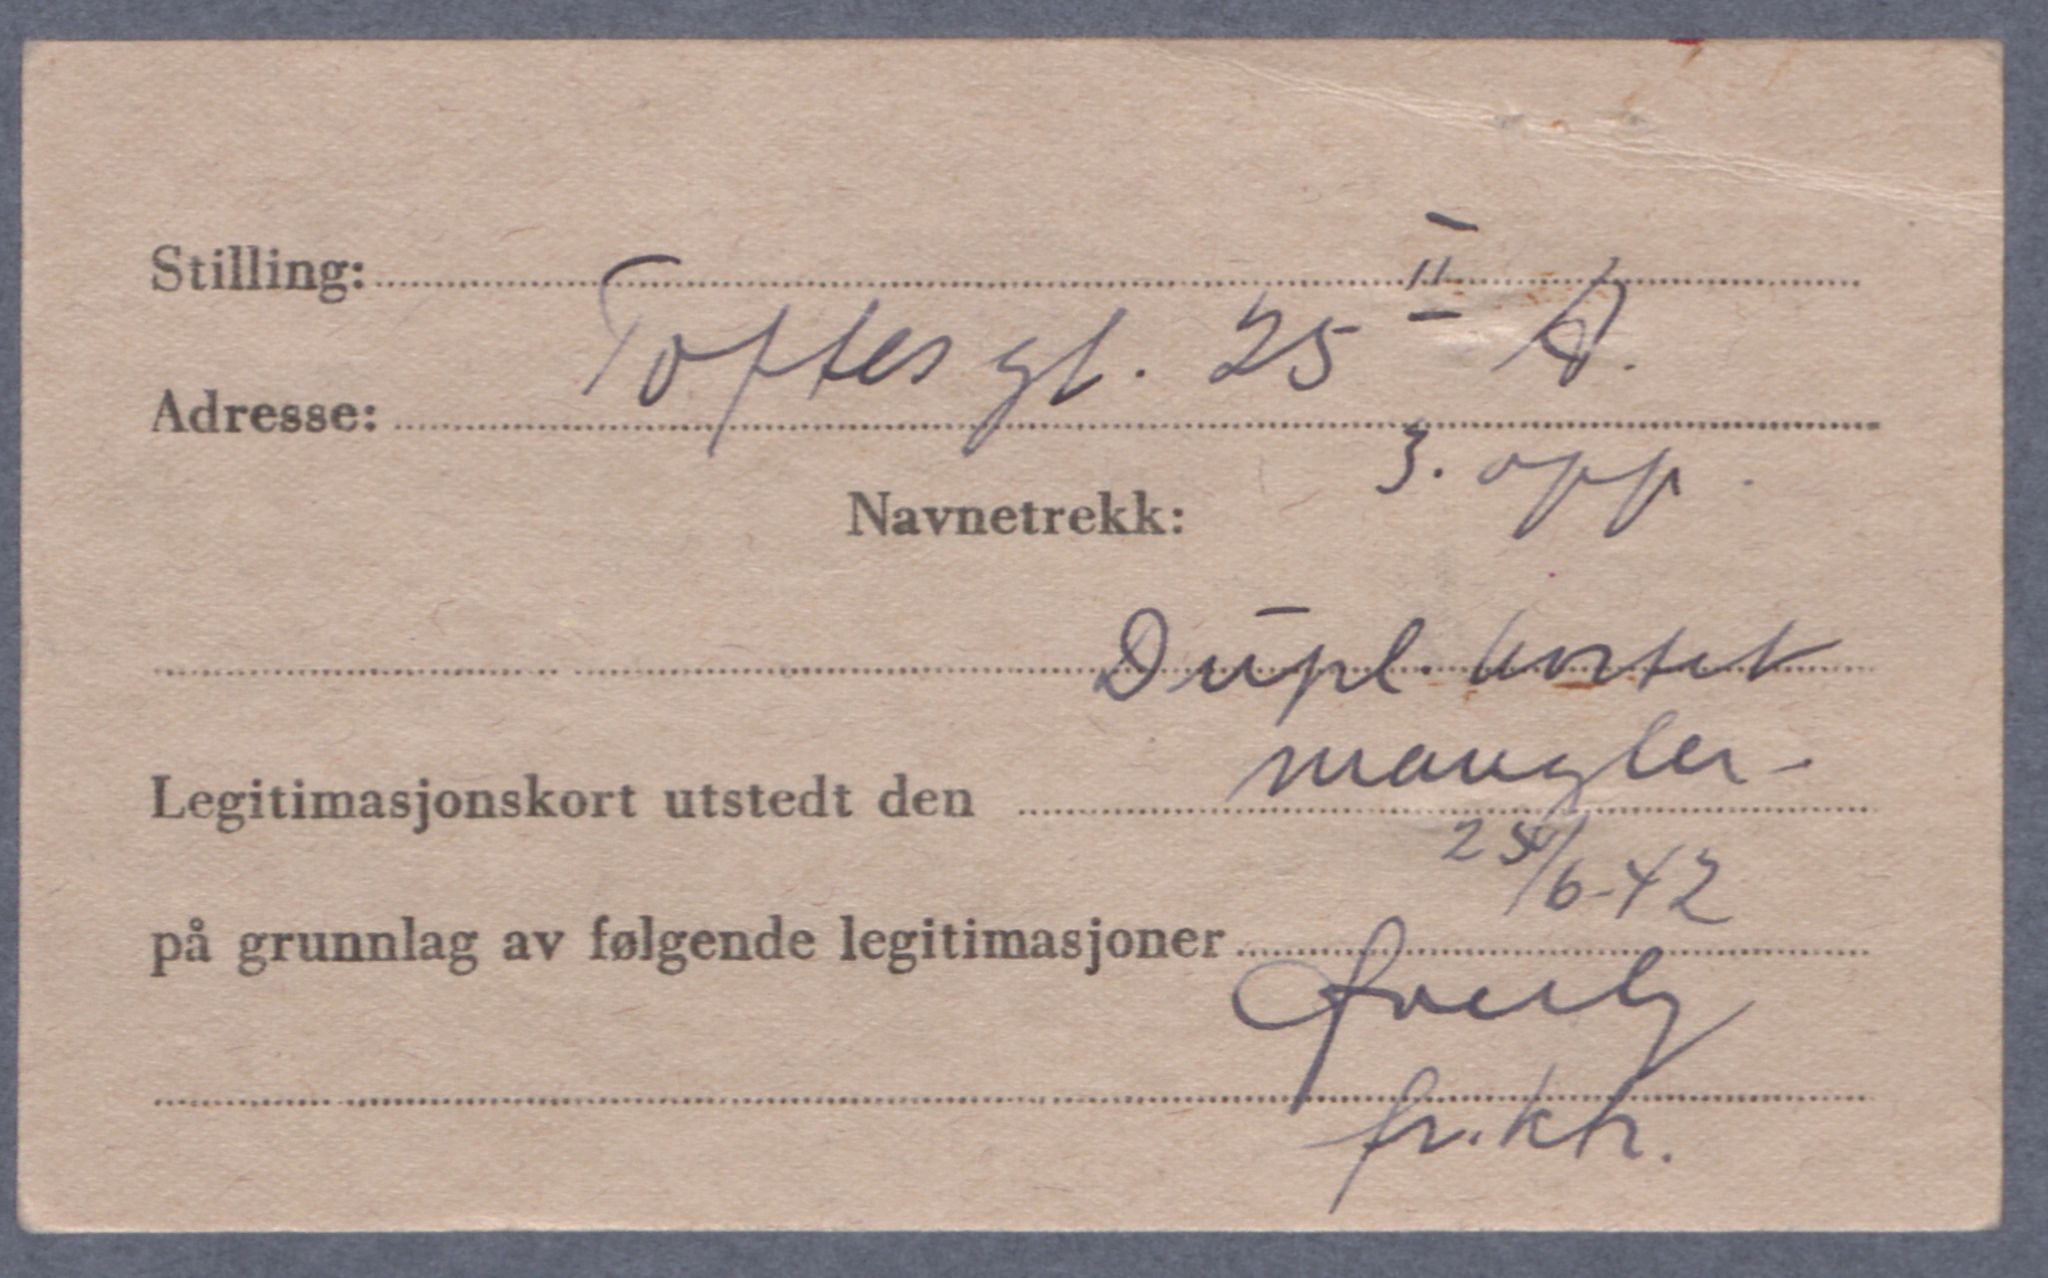 Stilling:
Toftes gt. 25 II A.
Adresse:
3. opp.
Navnetrekk:
Dupl. kortet
mangler.
Legitimasjonskort utstedt den
25/6-42
på grunnlag av følgende legitimasjoner
fr.kh.